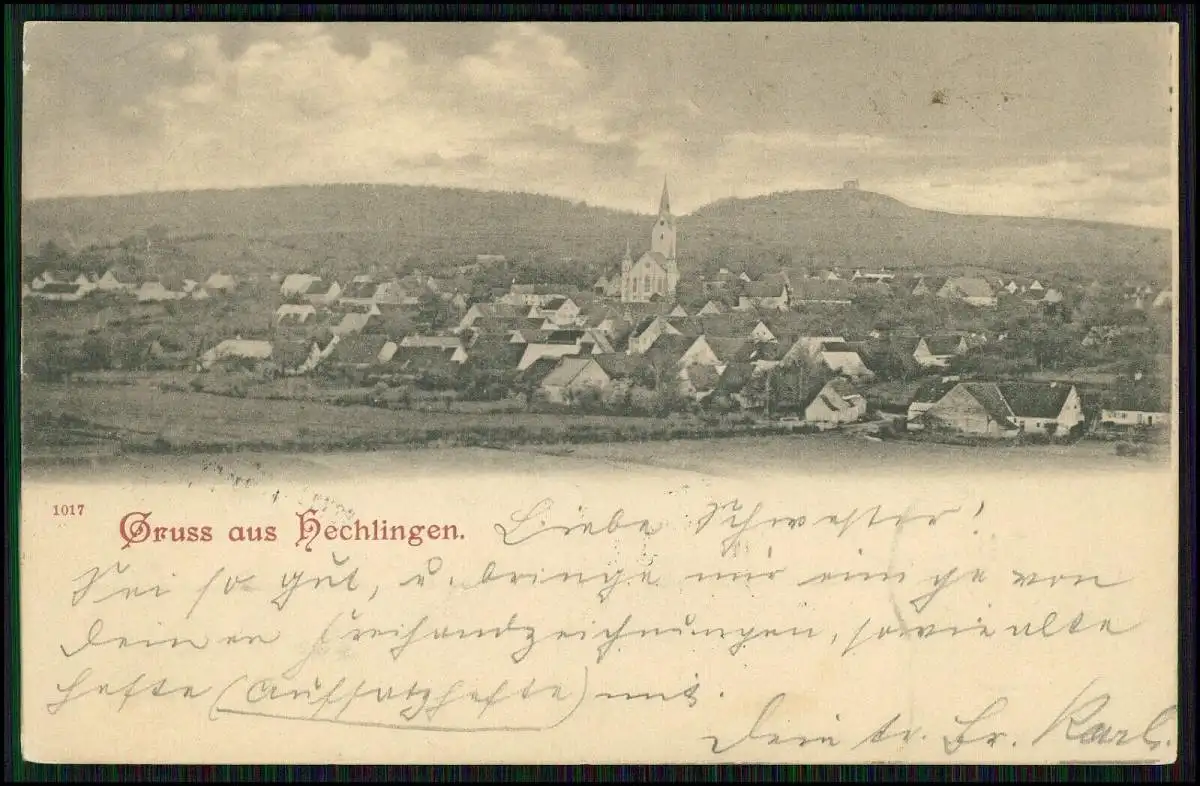 1017
Gruss aus Hechlingen.
Liebe Schwester!
Sei so gut, u. bringe mir einige von
Deinen Freihandzeichnungen, sowie alte
Hefte (Aufsatzhefte) mit.
Dein tr. Br. Karl.